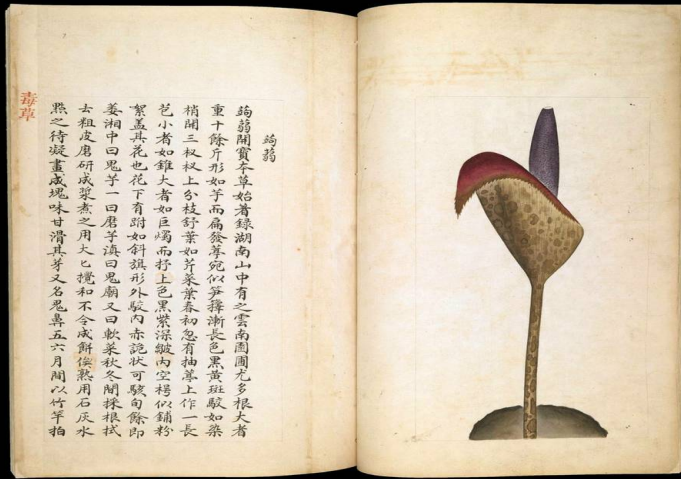 蒟蒻
蒟蒻開寶本草始著録湖南山中有之雲南園圃尤多根大者
重十餘斤形如芋而扁發蕚宛似笋籜漸長色黑黄斑駁如染
梢開三杈杈上分枝舒葉如芹菜葉春初忽有抽蕚上作一長
苞小者如錐大者如巨燭而抒上色黒紫深皺内空樗似鋪粉
絮盖其花也花下有跗如斜旗形外駁内赤詭状可駭旬餘即
萎湘中曰鬼芋一曰磨芋滇曰鬼廟又曰軟菜秋冬間採根拭
去粗皮磨研成漿煮之用大匕攪和不令成餅俟熟用石灰水
點之待凝畫成塊味甘滑其芽又名鬼鼻五六月間以竹竿拍
毒草